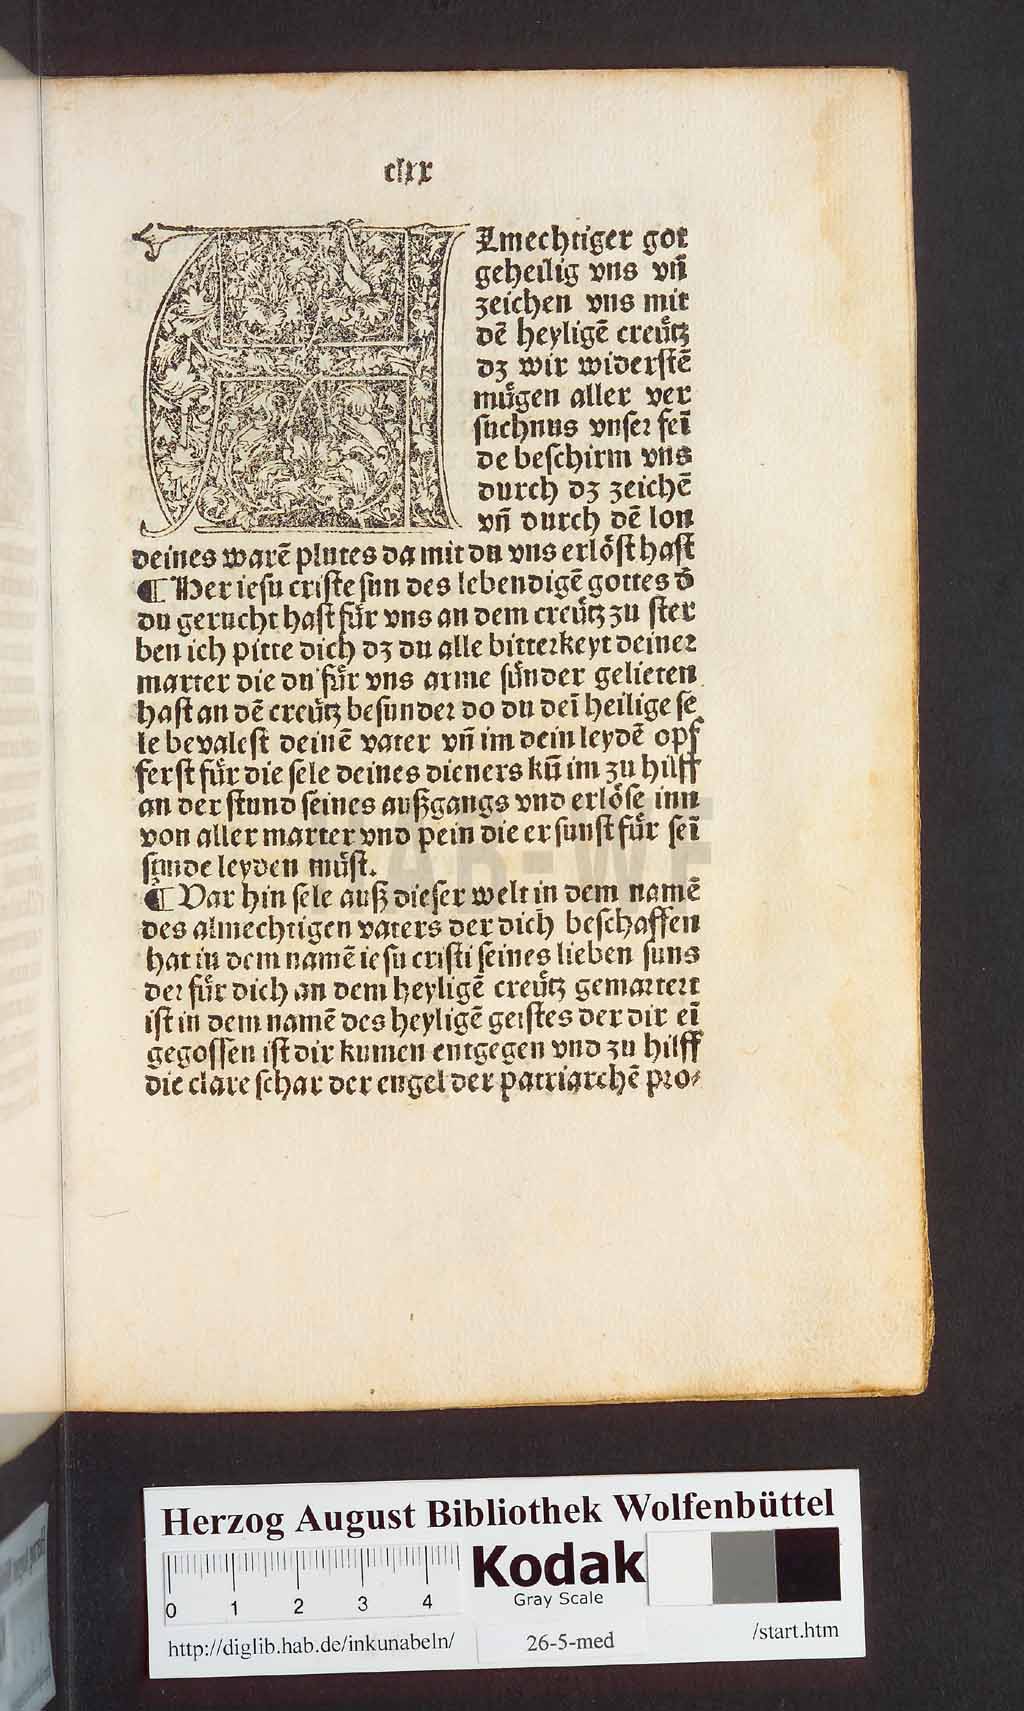 clxx
Almechtiger got
geheilig vns vñ
zeichen vns mit
dē heyligē creu̇tz
dz wir widerstē
mügen aller ver
suchnus vnser feī
de beschirm vns
durch dz zeichē
vñ durch dē lon
deines warē plutes da mit du vns erlöst hast
¶ Her iesu criste sun des lebendigē gottes d̄
du gerucht hast für vns an dem creütz zu ster
ben ich pitte dich dz du alle bitterkeyt deiner
marter die du für vns arme sünder gelieten
hast an dē creütz besunder do du deī heilige se
le bevalest deinē vater vñ im dein leydē opf
ferst für die sele deines dieners kū im zu hilff
an der stund seines außgangs vnd erlöse inn
von aller marter vnd pein die er sunst für seī
sunde leyden müst.
¶ Var hin sele auß dieser welt in dem namē
des almechtigen vaters der dich beschaffen
hat in dem namē iesu cristi seines lieben suns
der für dich an dem heyligē creütz gemartert
ist in dem namē des heyligē geistes der dir eī
gegossen ist dir kumen entgegen vnd zu hilff
die clare schar der engel der patriarchē pro⸗
HAB-WF
Herzog August Bibliothek Wolfenbüttel
0 1 2 3 4
Kodak
Gray Scale
http://diglib.hab.de/inkunabeln/ 26-5-med /start.htm